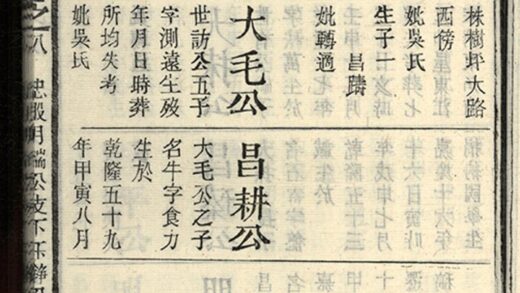 株樹坪大路
西傍
妣吳氏
生子一 昌躋
妣轉適
大毛公
世訪公五子
字測遠生歿
年月日時葬
所均失考
妣吳氏
昌耕公
大毛公之子
名牛字食力
生於
乾隆五十九
年甲寅八月
之八 明端公支下